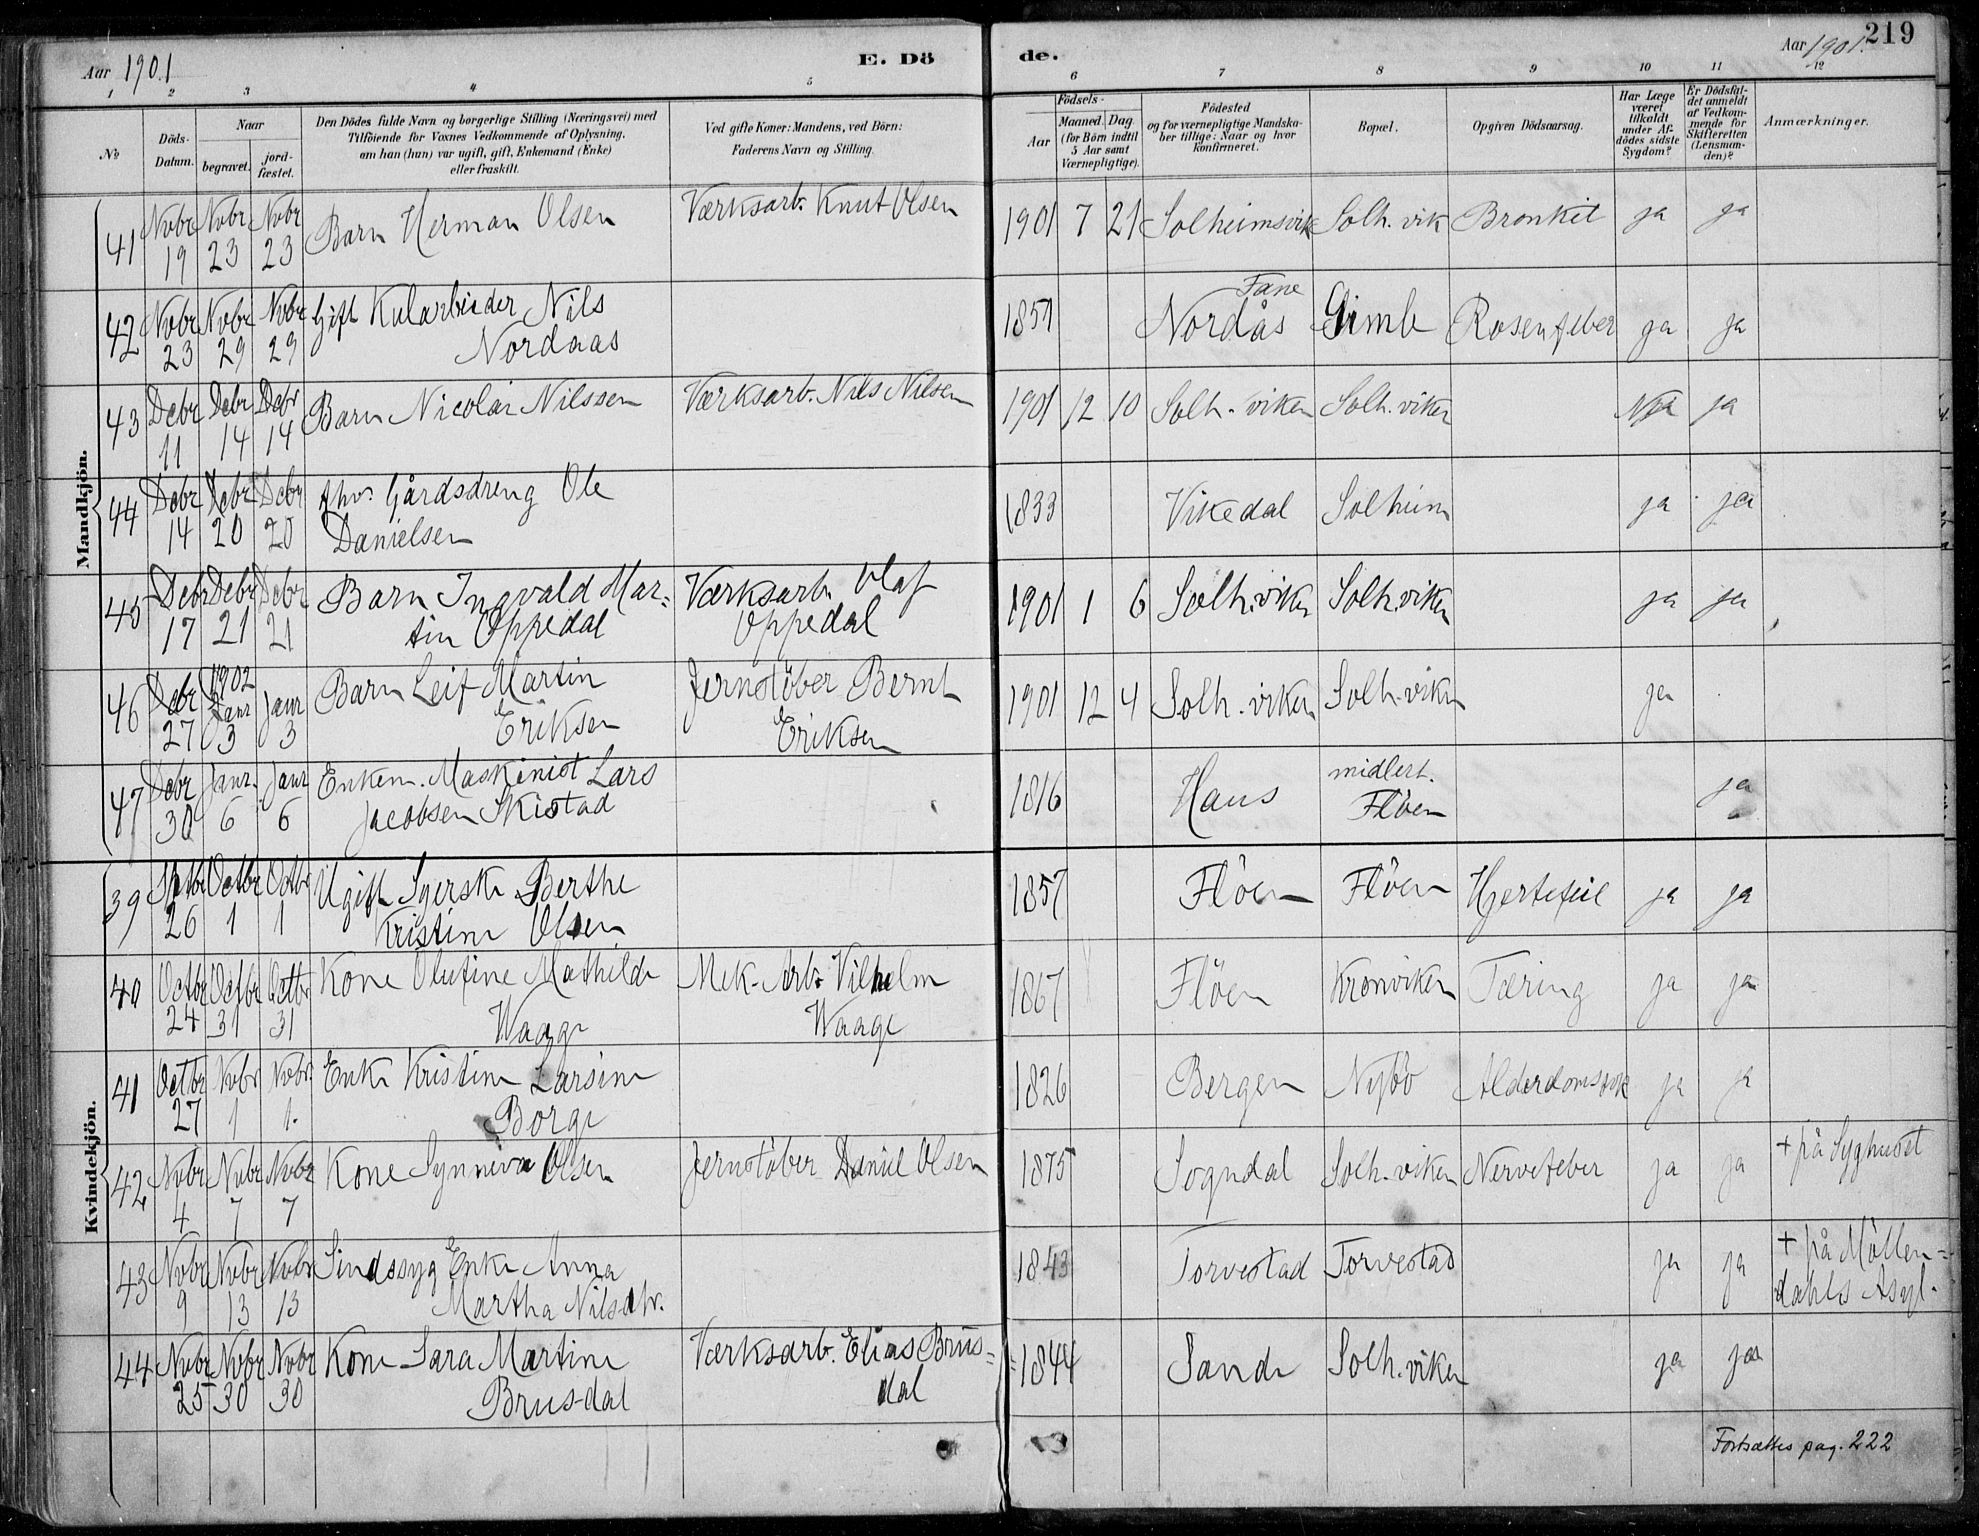 Aar 1901
E. Dö
de.
Aar 1901.
219
1 2 3 4 5 6 7 8 9 10 11 12
No
Döds-Datum.
Naar
begravet.
jord-fæstet.
Den Dödes fulde Navn og borgerlige Stilling (Næringsvei) med
Tilföiende for Voxnes Vedkommende af Oplysning,
om han (hun) var ugift, gift, Enkemand (Enke)
eller fraskilt.
Ved gifte Koner: Mandens, ved Börn:
Faderens Navn og Stilling.
Födsels-
Aar
Maaned. Dag
(for Börn indtil
5 Aar samt
Værnepligtige).
Födested
og for værnepligtige Mandska-
ber tillige: Naar og hvor
konfirmeret.
Bopæl.
Opgiven Dödsaarsag.
Har Læge
været
tilkaldt
under Af-
dödes sidste
Sygdom?
Er Dödsfal-
det anmeldt
af Vedkom-
mende for
Skifteretten
(Lensman-
den)?
Anmærkninger.
Mandkjön.
41 Novbr 19 Novbr 23 Novbr 23 Barn Herman Olsen Værksarb. Knut Olsen 1901 7 21 Solheimsvik Solh. vik Bronkit ja ja
42 Novbr 23 Novbr 29 Novbr 29 Gift Kularbeider Nils
Nordaas 1857 Fane
Nordås Gimle Rosenfeber ja ja
43 Debr 11 Debr 14 Debr 14 Barn Nicolai Nilssen Værksarb. Nils Nilsen 1901 12 10 Solh. viken Solh. viken ja
44 Debr 14 Debr 20 Debr 20 fhv. Gårdsdreng Ole
Danielsen 1833 Vikedal Solheim ja ja
45 Debr 17 Debr 21 Debr 21 Barn Ingvald Mar-
tin Oppedal Værksarb. Olaf
Oppedal 1901 1 6 Solh.viken Solh.viken ja ja
46 Debr 27 1902 Janr 3 Janr 3 Barn Leif Martin
Eriksen Jernstöber Bernt
Eriksen 1901 12 4 Solh. viken Solh. viken ja
47 Debr 30 Janr. 6 Janr 6 Enkem. Maskinist Lars
Jacobsen Skistad 1816 Haus midlert.
Flöen ja
Kvindekjön.
39 Sptbr 26 Octbr 1 Octbr 1 Ugift Syerske Berthe
Kristine Olsen 1857 Flöen Flöen Hjertefeil ja ja
40 Octbr 24 Octbr 31 Octbr 31 Kone Olufine Mathilde
Waage Mek. Arb. Vilhelm
Waage 1867 Flöen Kronviken Tæring ja ja
41 Octbr 27 Nvbr 1 Nvbr. 1. Enke Kristine Larsine
Borge 1826 Bergen Nybö ja ja
42 Nvbr 4 Nvbr 7 Nvbr 7 Kone Synneva Olsen Jernstöber Daniel Olsen 1875 Sogndal Solh. viken Nervefeber ja ja + på Syghuset
43 Nvbr 9 Nvbr 13 Nvbr 13 Sindssyg Enke Anna
Martha Nilsdtr. 1843 Torvestad Torvestad ja ja + på Möllen-
dahls Asyl.
44 Nvbr 25 Nvbr 30 Nvbr 30 Kone Sara Martine
Brus-dal Værksarb. Elias Brus-
dal 1844 Sande Solh. viken ja ja
Fortsættes pag. 222